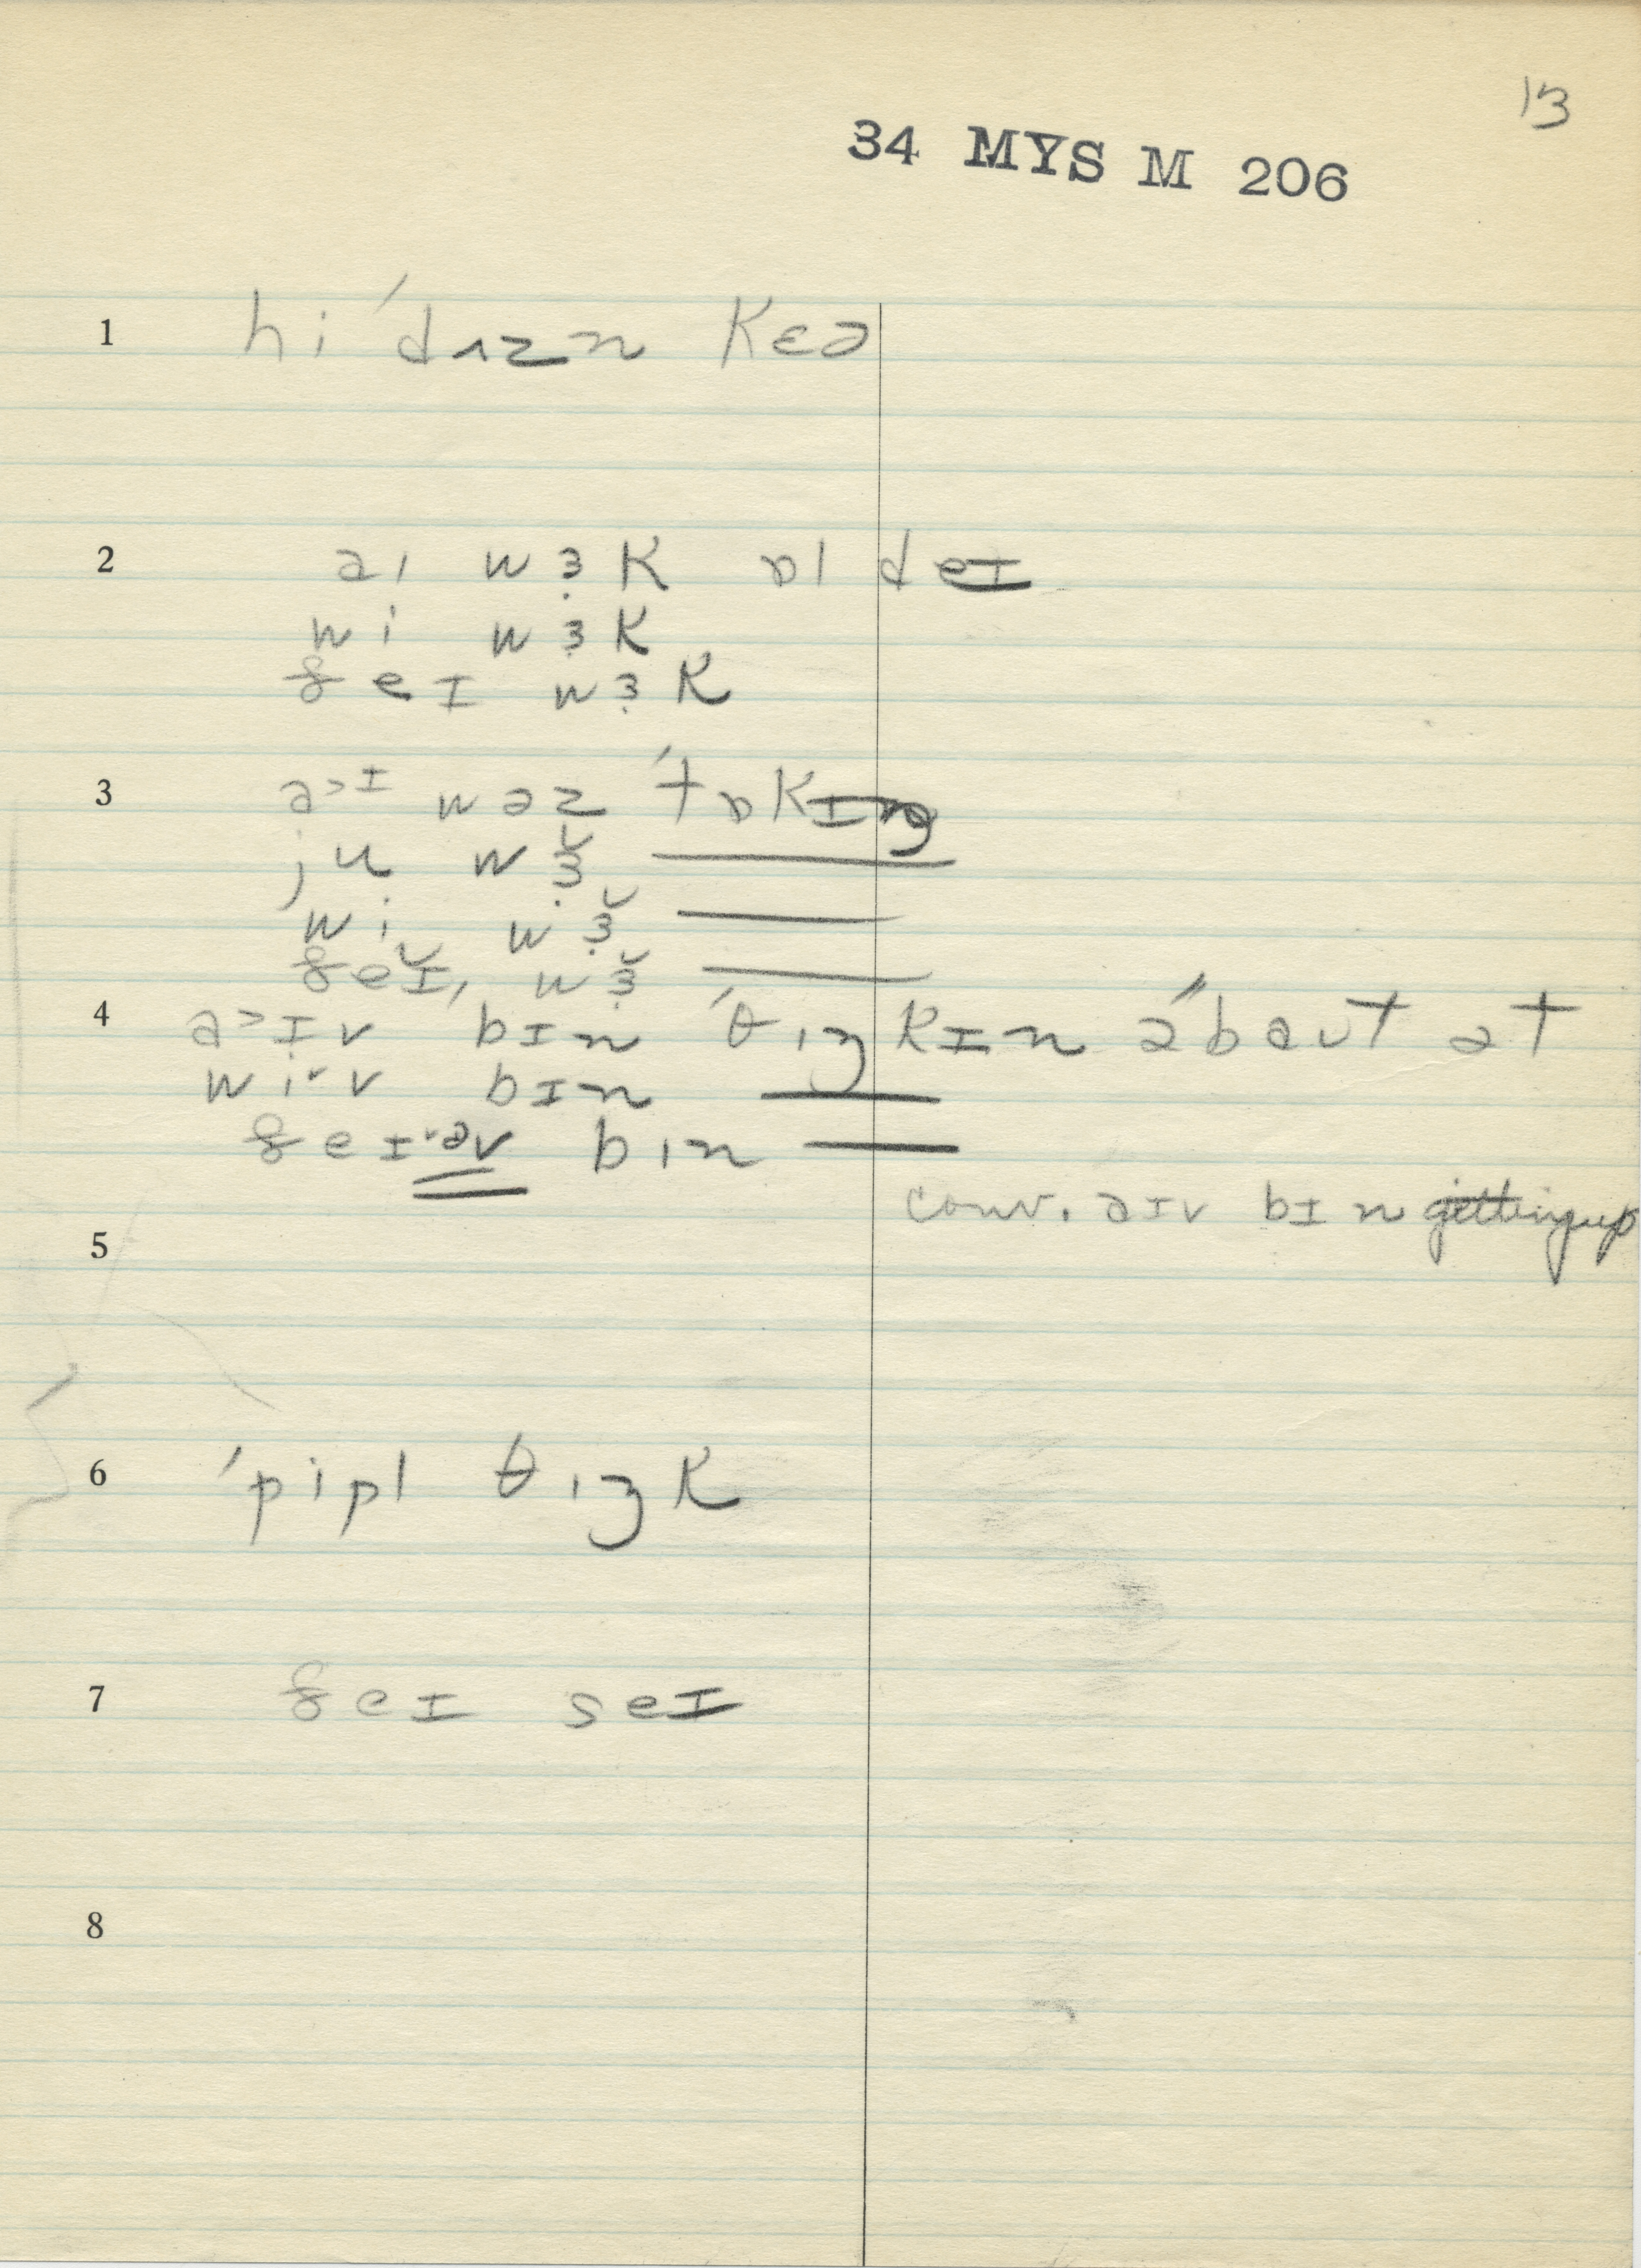 13
34 MYS M 206
1 hi ˈdʌzn kɛə
2 aɪ wɜ̣k ɒl deɪ
wi wɜ̣k
ðeɪ wɜ̣k
3 a˃ɪ wəz ˈtɒkɪŋ
ju wɜ̣̆ ——
wi wɜ̣̆ ——
ðeɪ̆, wɜ̣̆ ——
4 a˃ɪv bɪn ˈθɪŋkɪn əˈbaʊt ət
wiˇv bɪn ——
ðeɪˇəv bɪn ——
conv. aɪv bɪn getting up
5
6 ˈpipl θɪŋk
7 ðeɪ seɪ
8